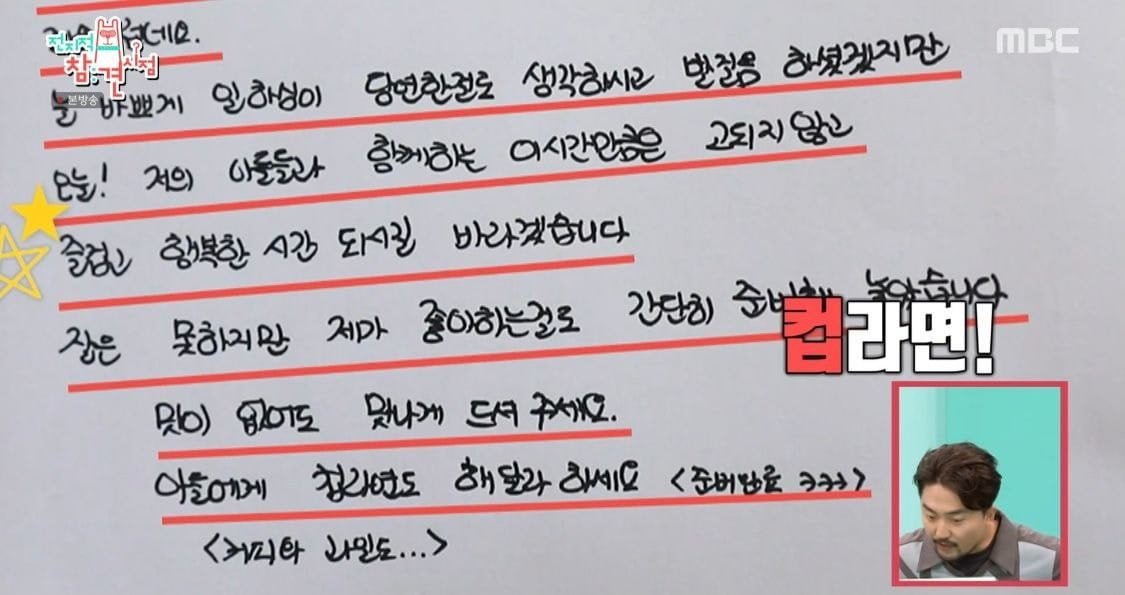 MBC
전지적
참견
시점
본방송
늘 바쁘게 일하심이 당연한걸로 생각하시고 발걸음 하셨겠지만
오늘! 저의 아들들과 함께하는 이시간만큼은 고되지 않고
즐겁고 행복한 시간 되시길 바라겠습니다
잘은 못하지만 제가 좋아하는걸로 간단히 놓았습니다
컵라면!
맛이 없어도 맛나게 드셔 주세요.
아들에게 컵라면도 해달라 하세요 <준비완료 ㅋㅋㅋ>
<커피와 과일도...>